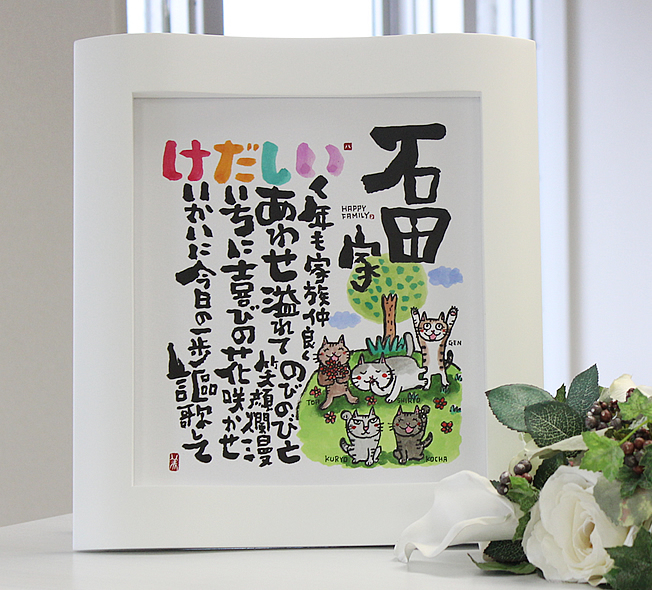 石田家
HAPPY
FAMILY
いく年も家族仲良くのびのびと
しあわせ溢れて笑顔爛漫に
だいちに喜びの花咲かせ
けいかいに今日の一歩謳歌して
GEN
SHIRYO
KURYO
KOCHA